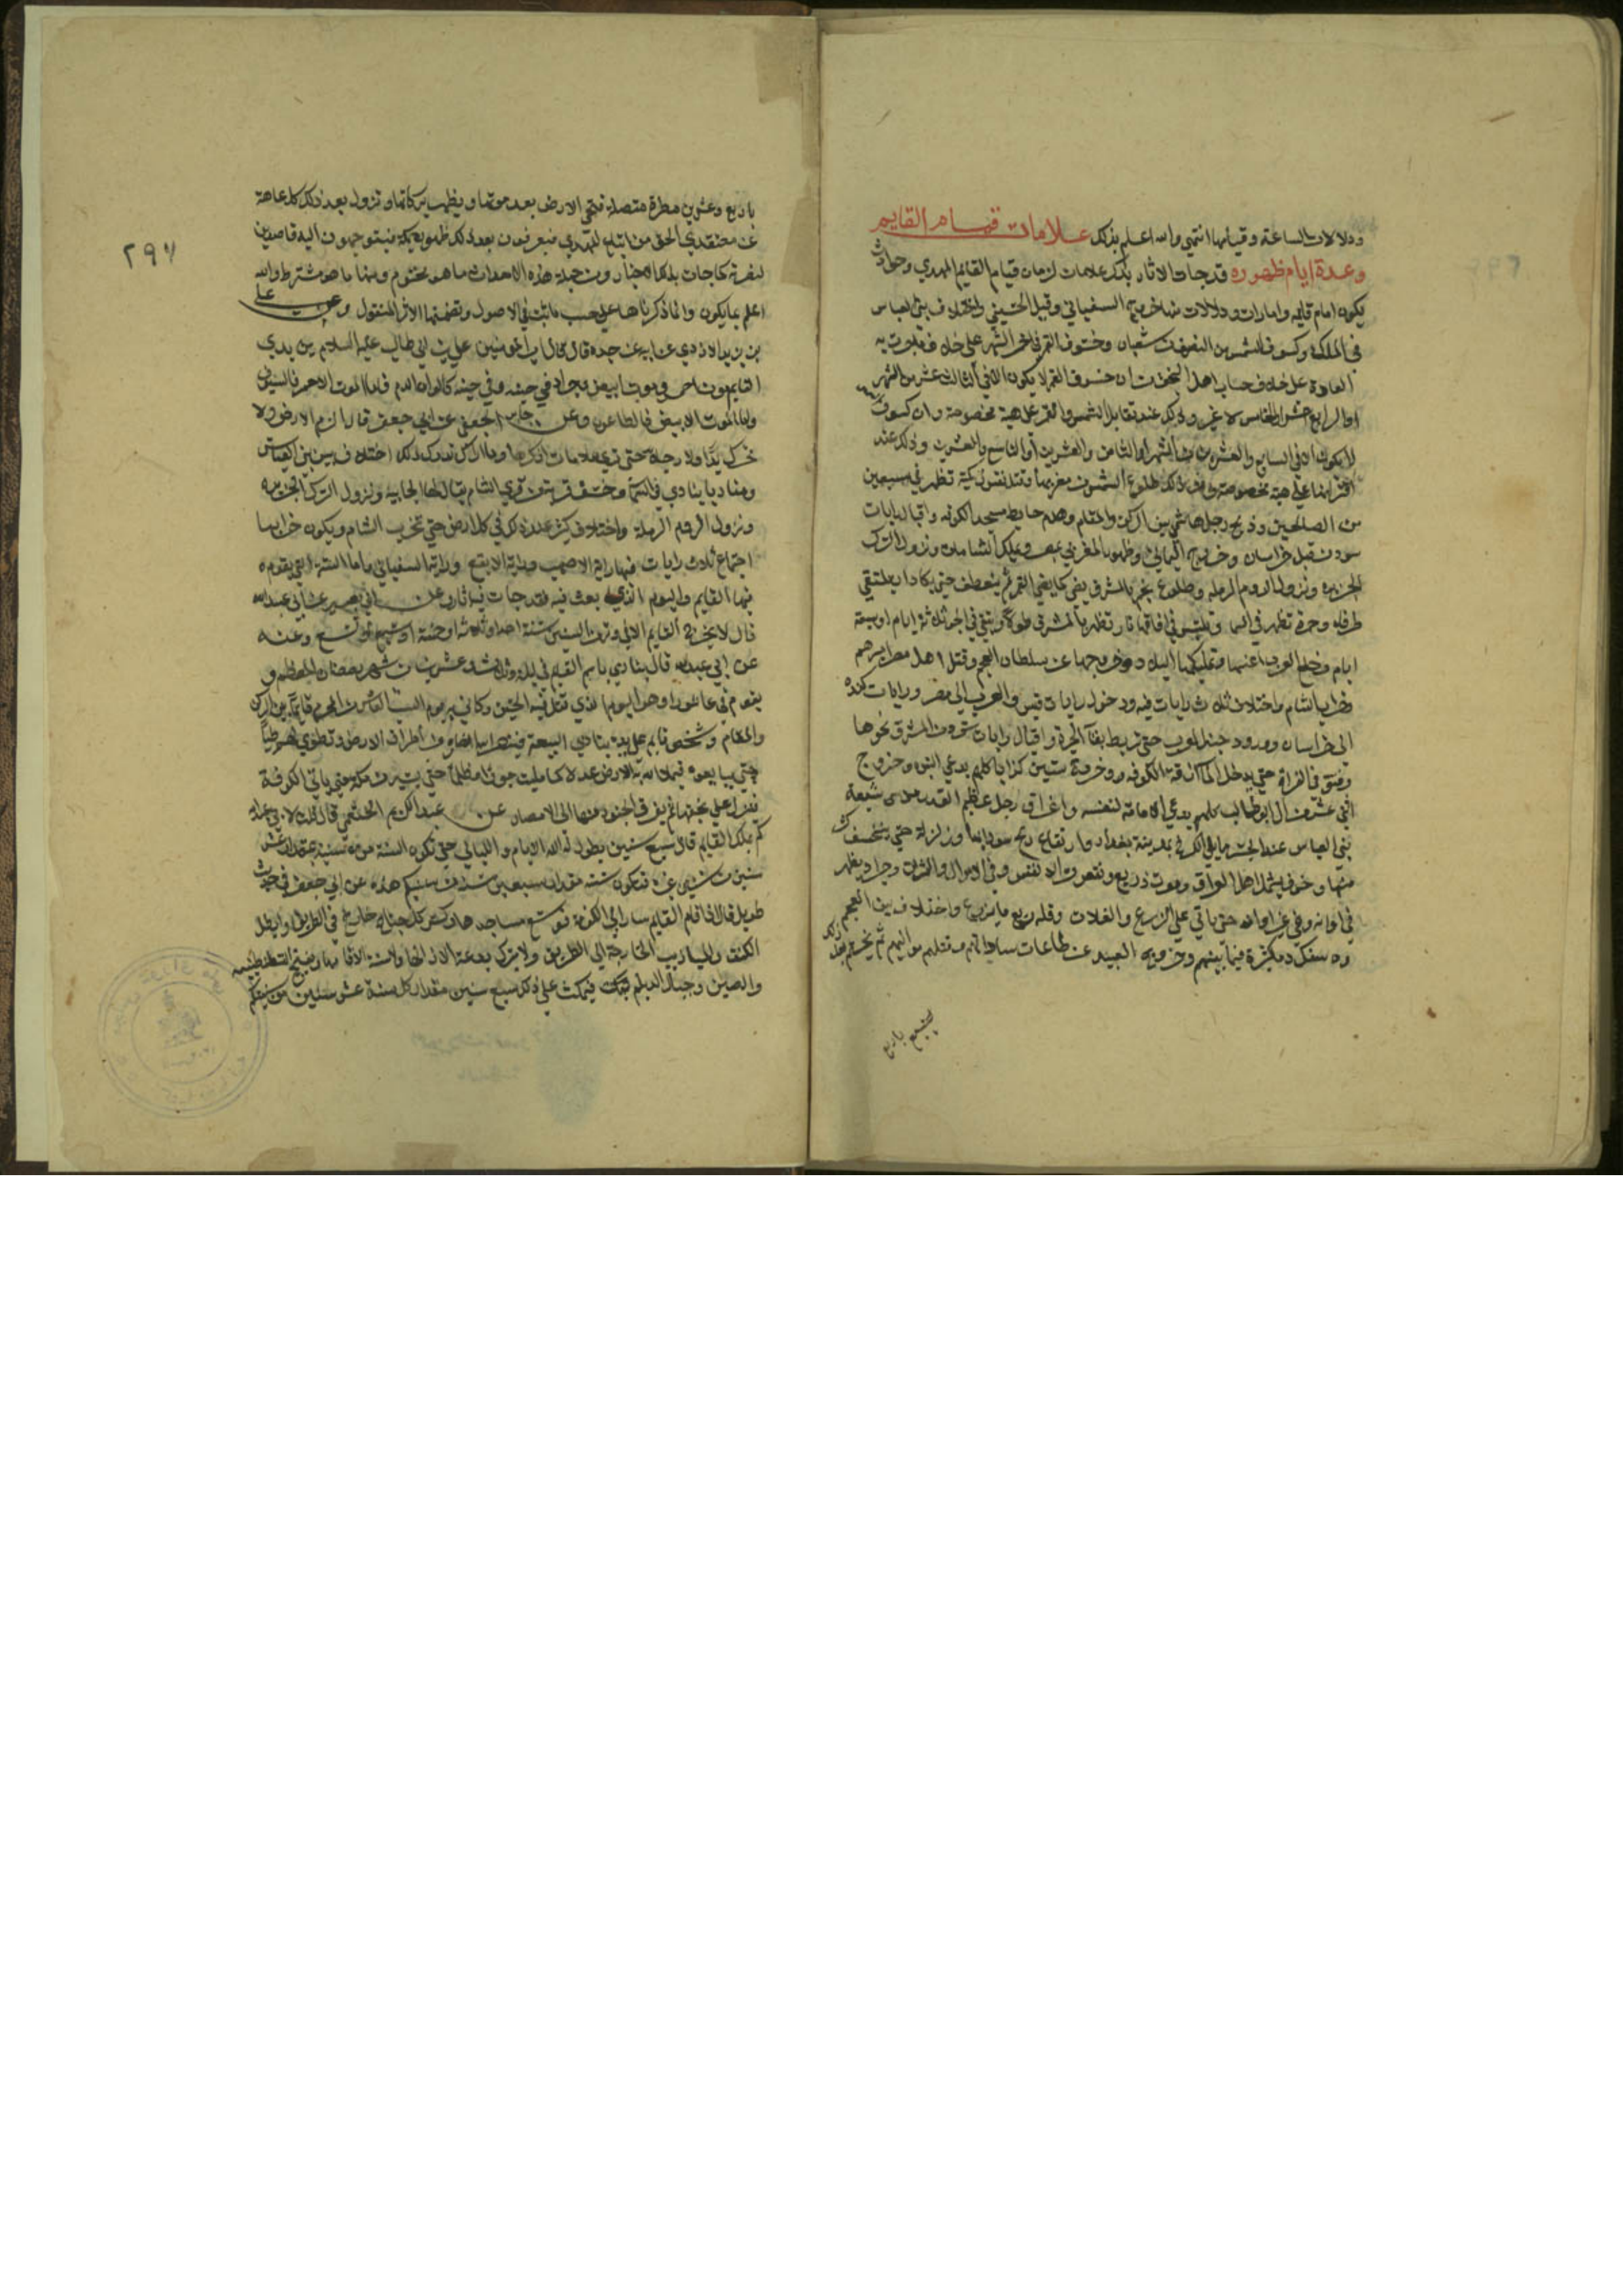 ودلالات الساعة وقيامها انتهى والله اعلم بذلك علامات قيام القايم
وعدة ايام ظهوره قد جات الاثار بذكر علامات لزمان قيام القايم المهدي وحوادث
يكون امام قيامه وامارات ودلالات منها خروج السفياني وقتل الحسيني واختلاف بني العباس
في الملك وكسوف الشمس في النصف من شعبان وخسوف القمر في اخر الشهر على خلاف ما جرت به
العادة على خلاف حساب اهل النجوم من ان خسوف القمر لا يكون الا في الثالث عشر من الشهر
او الرابع عشر او الخامس لا غير وذلك عند تقابل الشمس والقمر على هية مخصوصة وان كسوف الشمس
لا يكون الا في السابع والعشرين من الشهر او الثامن والعشرين او التاسع والعشرين وذلك عند
اقترانهما على هية مخصوصة ومن ذلك طلوع الشمس من مغربها وقتل نفس زكية تظهر في سبعين
من الصالحين وذبح رجل هاشمي بين الركن والمقام وهدم حايط مسجد الكوفه واقبال رايات
سود من قبل خراسان وخروج اليماني وظهور المغربي بمصر وتملكه الشامات ونزول الترك
الجزيره ونزول الروم الرمله وطلوع نجم بالمشرق يضي كما يضي القمر ثم ينعطف حتى يكاد يلتقي
طرفاه وحمرة تظهر في السما وتلتبس في افاقها ونار تظهر بالمشرق طولا وتبقى في الجو ثلاثة ايام او سبعة
ايام وخلع العرب اعنتها وتملكها البلاد وخروجها عن سلطان العجم وقتل اهل مصر اميرهم
وخراب الشام واختلاف ثلاث رايات فيه ودخول رايات قيس والعرب الى مصر ورايات كنده
الى خراسان وورود جند العرب حتى تربط بفنآ الحيرة واقبال رايات سود من المشرق نحوها
وفتق في الفراة حتى يدخل المآ ازقة الكوفه وخروج ستين كذابا كلهم يدعي النبوه وخروج
اثني عشر من ال ابو طالب كلهم يدعي الامامة لنفسه واغراق رجل عظيم القدر من شيعة
بني العباس عند الجسر مما يلي الكرخ بمدينة بغداد وارتفاع ريح سودا بها وزلزلة حتى ينخسف كثير
منها وخوف يشمل اهل العراق وموت ذريع ونقص من الانفس وفي الاموال والثمرات وجراد يظهر
في اوانه وفي غير اوانه حتى ياتي على الزرع والغلات وقلة ريع ما يزرع واختلاف بين العجم
وسفك دم كثيرة فيما بينهم وخروج العبيد عن طاعات ساداتهم وقتلهم مواليهم ثم يختم بعد ذلك
باربع
٢٩٧
باربع وعشرين مطرة متصلة فتحيى الارض بعد موتها ويظهر بركاتها وتزول بعد ذلك كل عاهة
عن معتقدي الحق من اتباع المهدي فيعرفون بعد ذلك ظهوره بمكة فيتوجهون اليه قاصدين
لنصرته كما جات بذلك الاخبار ومن جملة هذه الاحداث ما هو محتوم ومنها ما هو مشترط والله
اعلم بما يكون وانما ذكرناها على حسب ما ثبت في الاصول وتضمنها الاثر المنقول وعن علي
بن يزيد الازدي عن ابيه عن جده قال قال امير المومنين علي بن ابي طالب عليه السلام بين يدي
القايم موت احمر وموت ابيض وجراد في حينه وفي غير حينه كالوان الدم فاما الموت الاحمر فالسيف
واما الموت الابيض فالطاعون وعن جابر الجعفي عن ابي جعفر قال الزم الارض ولا
تحرك يدا ولا رجلا حتى ترى علامات اذكرها وما اراك تدرك ذلك اختلاف بين بني العباس
ومناديا ينادي في السما وخسف قرية من قرى الشام يقال لها الجابيه ونزول الترك الجزيره
ونزول الروم الرملة واختلاف كثير عند ذلك في كل ارض حتى تخرب الشام ويكون خرابها
اجتماع ثلاث رايات فيها راية الاصهب وراية الابقع وراية السفياني واما السنة التي يقوم
فيها القايم واليوم الذي يبعث فيه فقد جات فيه اثار وعن ابي بصير عن ابي عبد الله
قال لا يخرج القايم الا في وتر من السنين سنة احدا وثلاث او خمسة او سبع او تسع وعنه
عن ابي عبد الله قال ينادي باسم القايم في ليلة ثلاث وعشرين من شهر رمضان المعظم و
يقوم في عاشورا وهو اليوم الذي قتل فيه الحسين وكاني به يوم السبت العاشر من المحرم قايم بين الركن
والمقام وشخص قايم على يده ينادي البيعة فيصير اليه انصاره من اطراف الارض وتطوي لهم طيا
حتى يبايعوه فيملا الله به الارض عدلا كما مليت جورا وظلما حتى يسير من مكة حتى ياتي الكوفة
فينزل على نجفها ثم يفرق الجنود منها الى الامصار عن عبد الكريم الخثعمي قال قلت لابي عبد الله
كم يملك القايم قال سبع سنين يطول له الله الايام والليالي حتى تكون السنة من سنينه بمقدار عشر
سنين من سنينكم فتكون سنته مقدار سبعين سنة من سنينكم هذه عن ابي جعفر في حديث
طويل قال اذا قام القايم سار الى الكوفة فوسع مساجدها وكسر كل جناح خارج في الطريق وابطل
الكنف والميازيب الخارجة الى الطريق ولا يترك بدعة الا ازالها ولا سنة الا اقامها ويفتح القسطنطينيه
والصين وجبال الديلم فيمكث على ذلك سبع سنين مقدار كل سنة عشر سنين من سنينكم